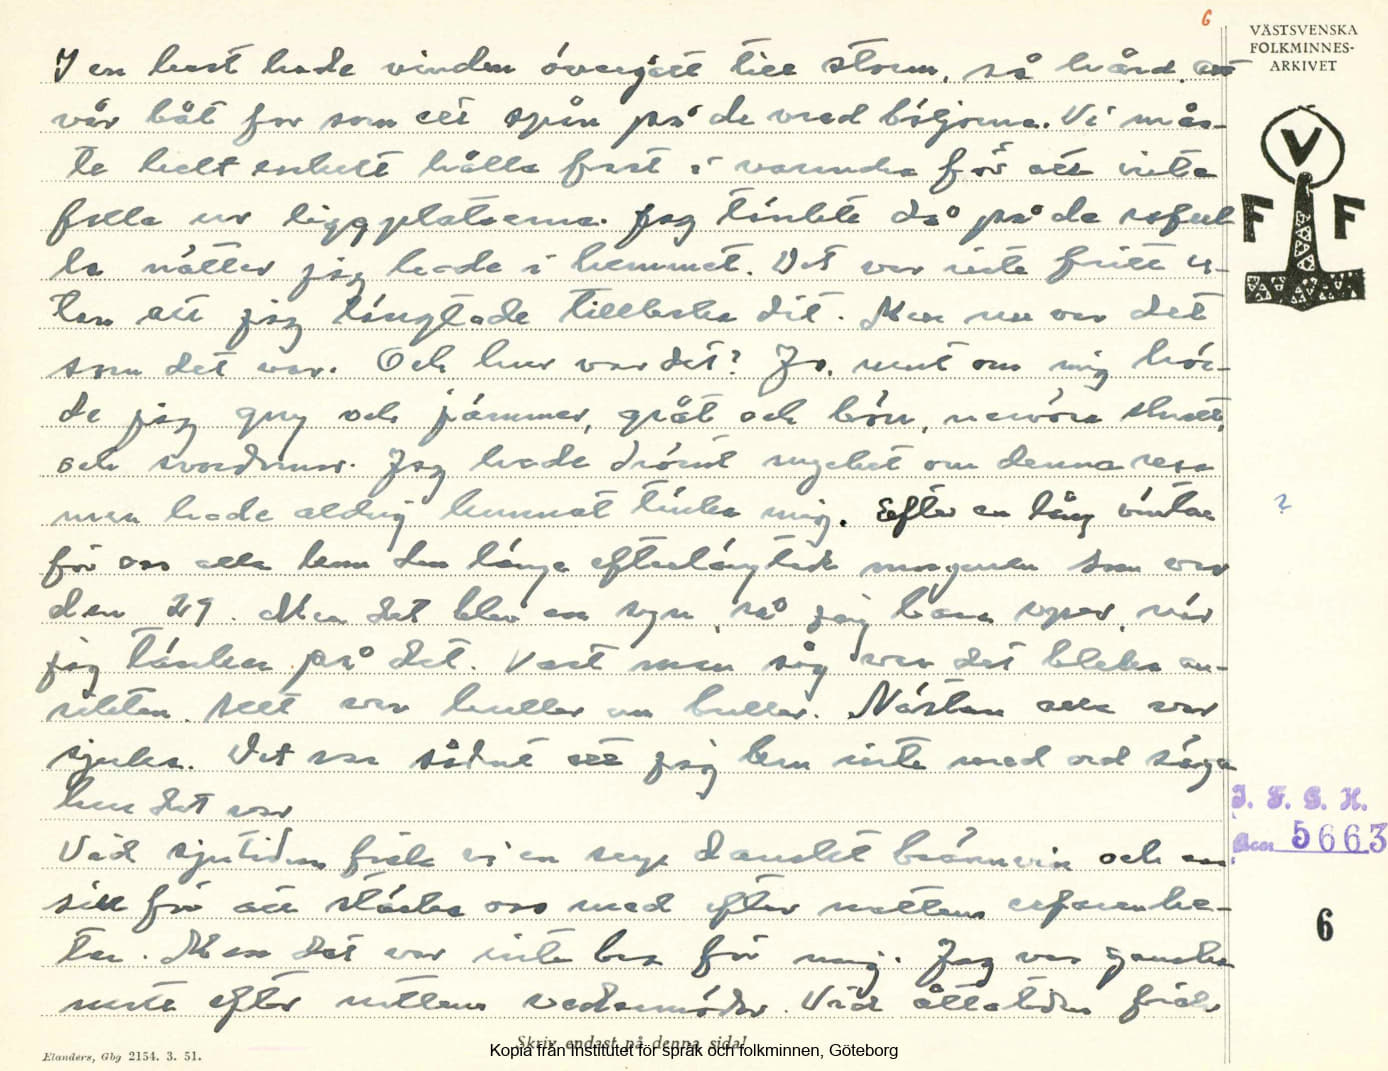 6
VÄSTSVENSKA
FOLKMINNES-
ARKIVET
I en hast hade vinden övergått till storm, så hård, att
vår båt for som ett spån på de vred böljorna. Vi mås-
te helt enkelt hålla fast i varandra för att inte
falla ur liggplatserna. Jag tänkte då på de rofull
la nätter jag hade i hemmet. Det var inte fritt u-
tan att jag längtade tillbaka dit. Men nu var det
som det var. Och hur var det? Jo, runt om mig hör-
de jag gny och jämmer, gråt och bön, nervösa skratt,
och svordomar. Jag hade drömt mycket om denna resa
men hade aldrig kunnat tänka mig. Efter en lång väntan
för oss alla kom den länge efterlängtade morgonen som var
den 29. Men det blev en syn, så jag bara ryser, när
jag tänker på det. Vart man såg var det bleka an-
sikten. Allt var huller om buller. Nästan alla var
sjuka. Det var sådant att jag kan inte med ord säga
hur det var
Vid sjutiden fick vi en sup danskt brännvin och en
sill för att stärka oss med efter nattens erfarenhe-
ter. Men det var inte bra för mig. Jag var ganska
matt efter nattens vedermödor. Vid åttatiden fick
V
F F
?
I. F. G. H.
Acc. 5663
6
Skriv endast på denna sida!
Kopia från Institutet för språk och folkminnen, Göteborg
Elanders, Gbg 2154. 3. 51.